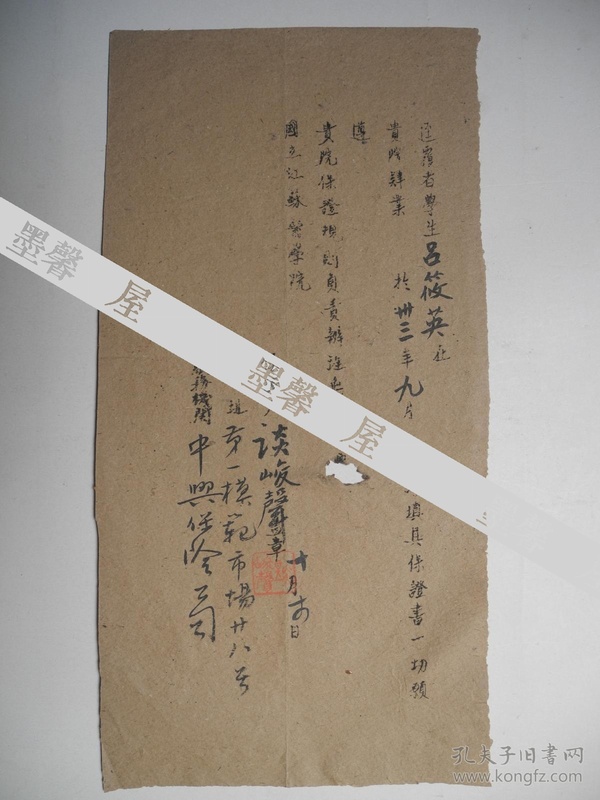 逕覆者學生呂筱英在
貴院肄業 於卅三年九月 填具保證書一切願
遵
貴院保證規則負責辦理
國立江蘇醫學院
談峻聲章 十月 日
第一模範市場廿八号
服務機關 中興保險公司
墨馨 屋
墨馨 屋
孔夫子旧書网
www.kongfz.com